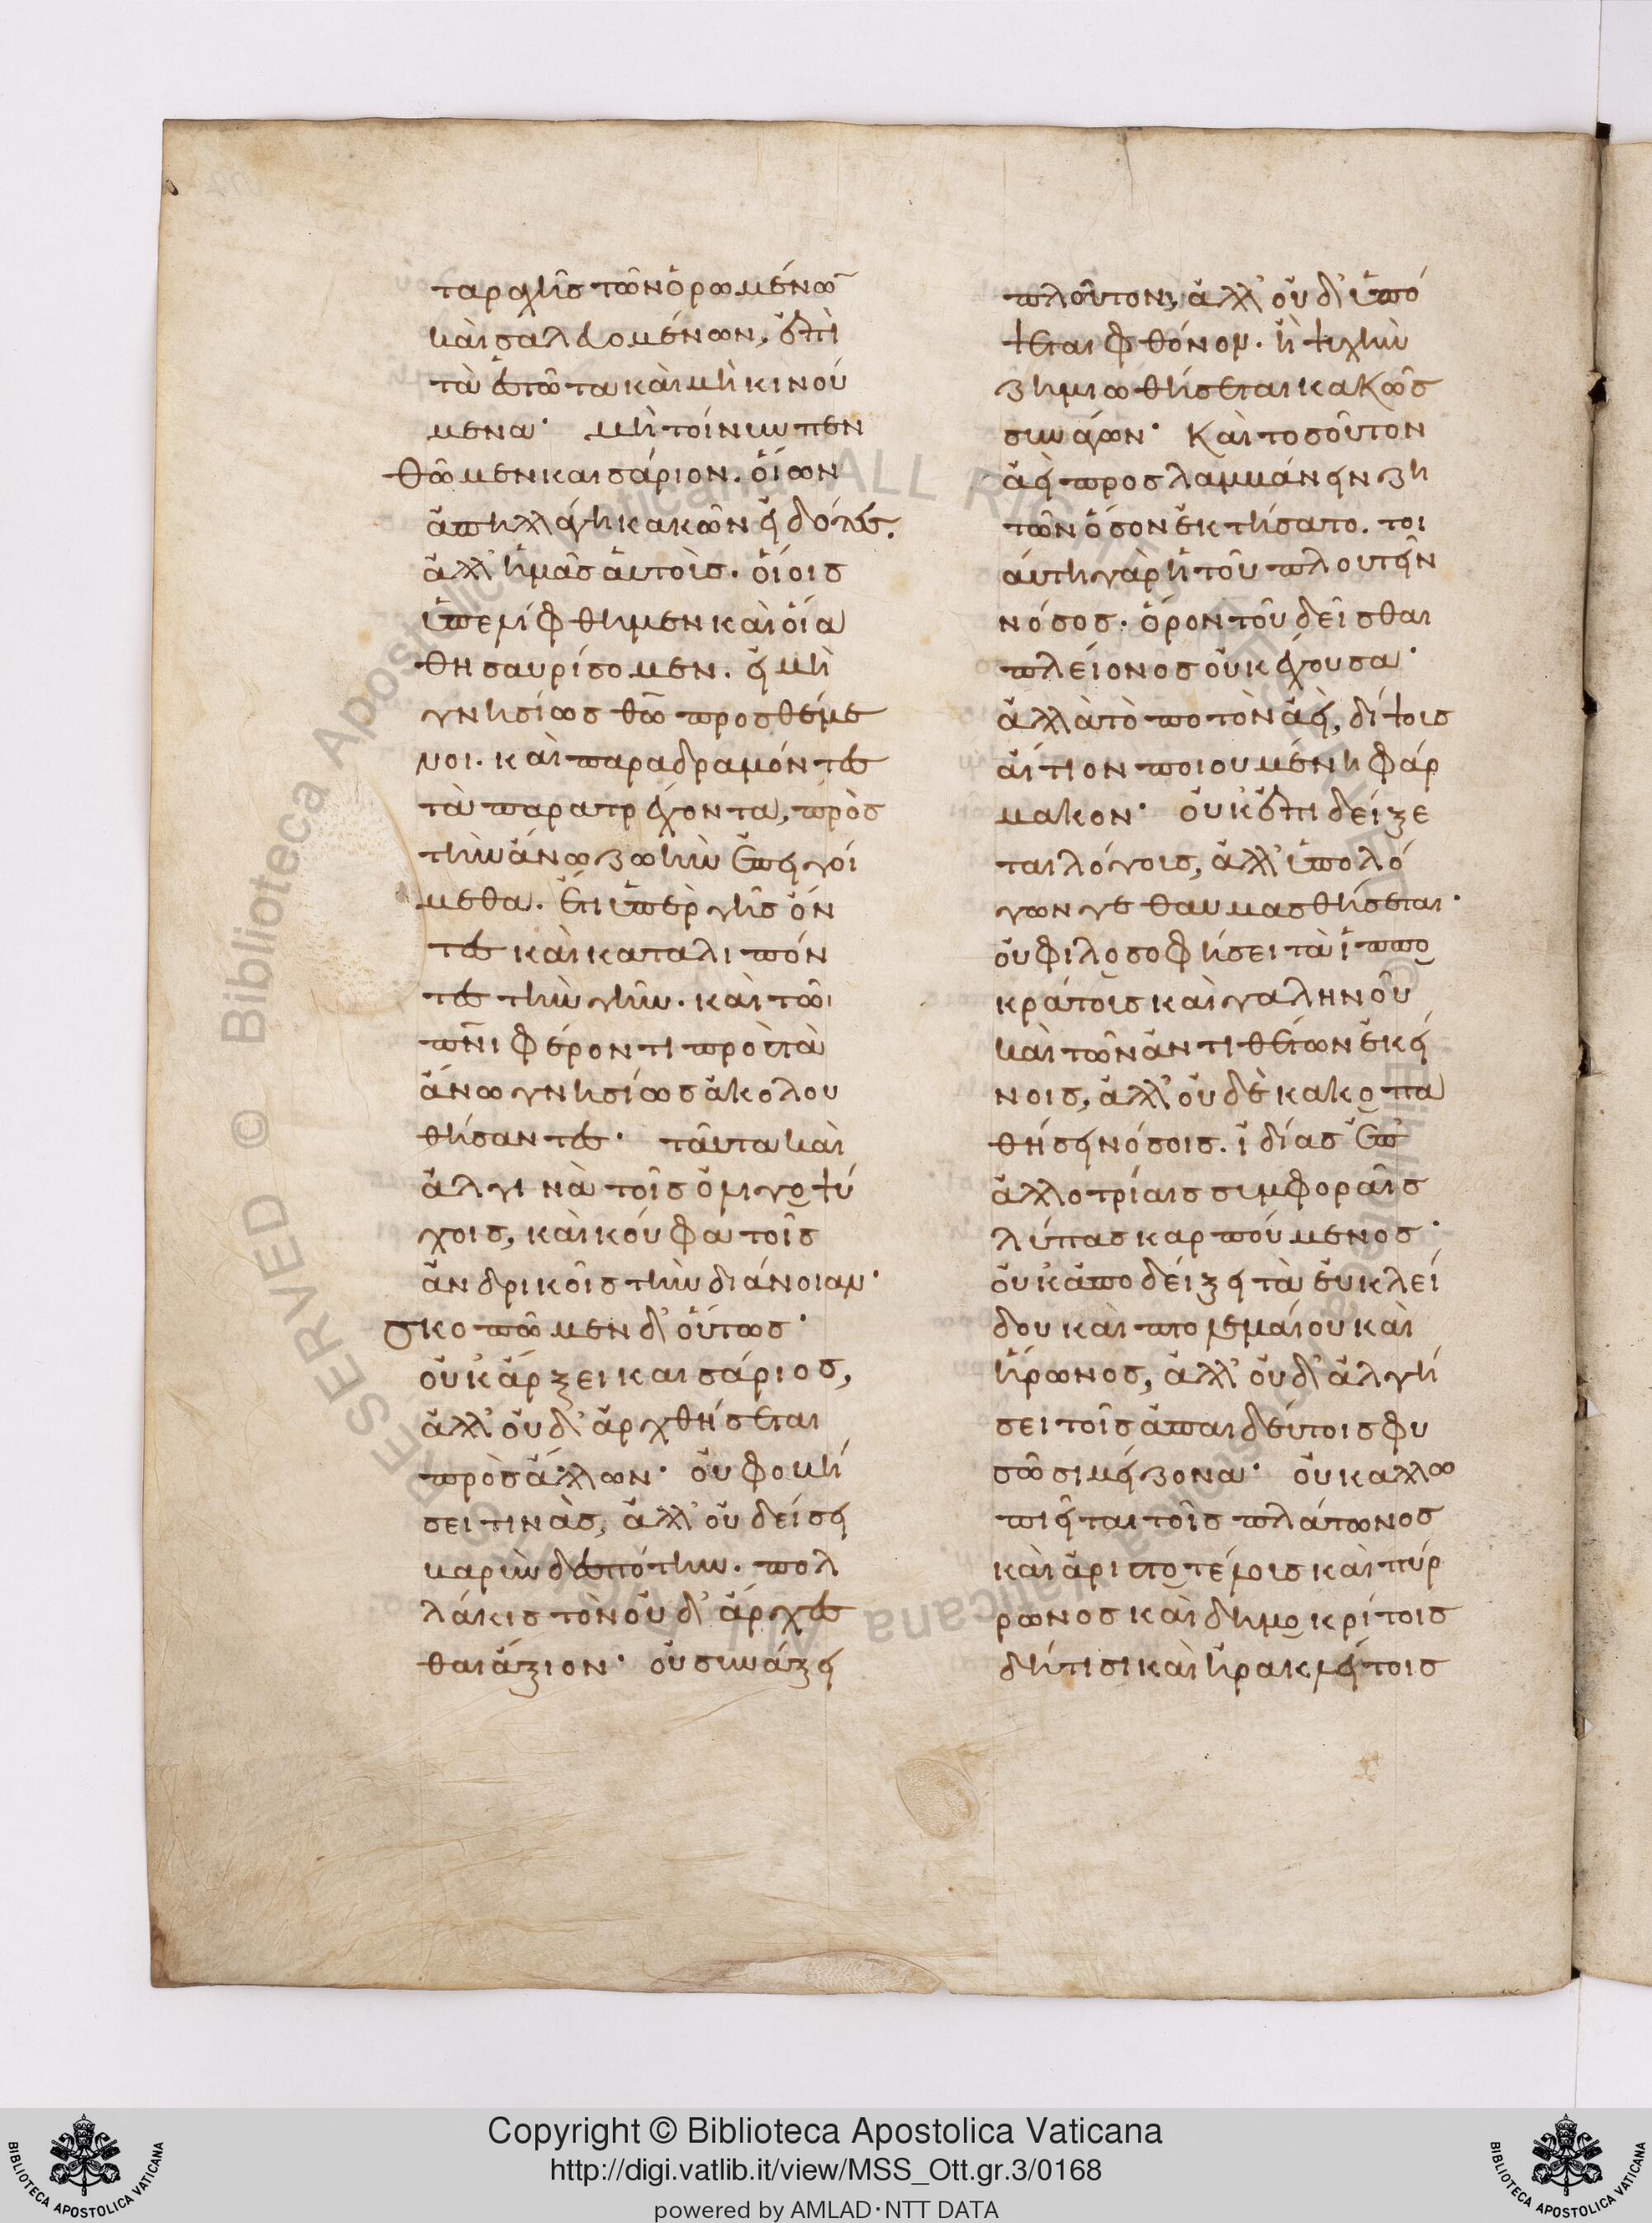 ταραχῆς τῶν ὁρωμένω̅
καὶ σαλευομένων, ἐπὶ
τὰ ἑστῶτα καὶ μὴ κινού
μενα· μὴ τοίνυν πεν
θῶμεν καισάριον. οἵων
ἀπηλλάγη κακῶν εἰδότες.
ἀλλ' ἡμᾶς αὐτοὺς. οἵοις
ὑπελείφθημεν καὶ οἷα
θησαυρίσομεν. εἰ μὴ
γνησίως θ̅ω̅ προσθέμε
νοι. καὶ παραδραμόντες
τὰ παρατρέχοντα, πρὸς
τὴν ἄνω ζωὴν ἐπειγοί
μεθα. ἔτι ὑπὲρ γῆς ὄν
τες καὶ καταλιπόν
τες τὴν γῆν. καὶ τῶι
π̅ν̅ι φέροντι πρὸς τὰ
ἄνω γνησίως ἀκολου
θήσαντες· ταῦτα καὶ
ἀλγινὰ τοῖς ὀλιγοψύ
χοις, καὶ κοῦφα τοῖς
ἀνδρικοῖς τὴν διάνοιαν·
σκοπῶμεν δ' οὕτως·
οὐκ ἄρξει καισάριος,
ἀλλ' οὐδ' ἀρχθήσεται
πρὸς ἄλλων· οὐ φοβή
σει τινὰς, ἀλλ' οὐ δείσει
βαρὺν δεσπότην. πολ
λάκις τὸν οὐδ' ἄρχεσ
θαι ἄξιον· οὐ συνάξει
πλοῦτον, ἀλλ' οὐδ' ὑπό
ψεται φθόνον. ἢ ψυχὴν
ζημιωθήσεται κακῶς
συνάγων· καὶ τοσοῦτον
ἀεὶ προσλαμβάνειν ζη
τῶν ὅσον ἐκτήσατο. τοι
αύτη γὰρ ἡ τοῦ πλουτεῖν
νόσος. ὅρον τοῦ δεῖσθαι
πλείονος οὐκ ἔχουσα·
ἀλλὰ τὸ ποτὸν ἀεὶ, δίψοις
αἴτιον ποιουμένη φάρ
μακον· οὐκ ἐπιδείξε
ται λόγους, ἀλλ' ὑπὸ λό
γων γε θαυμασθήσεται·
οὐ φιλοσοφήσει τὰ ἱππο
κράτους καὶ γαληνοῦ
καὶ τῶν ἀντιθέτων ἐκεί
νοις, ἀλλ' οὐδὲ κακοπα
θήσει νόσοις. ἰδίας ἐπ'
ἀλλοτρίαις συμφοραῖς
λύπας καρπούμενος·
οὐκ ἀποδείξει τὰ εὐκλεί
δου καὶ πτολεμαίου καὶ
ἥρωνος, ἀλλ' οὐδ' ἀλγή
σει τοῖς ἀπαιδεύτοις φυ
σῶσι μείζονα· οὐ καλλω
πιεῖται τοῖς πλάτωνος
καὶ ἀριστοτέλους καὶ πύρ
ρωνος καὶ δημοκρίτοις
δή τισι καὶ ἡρακλείτοις